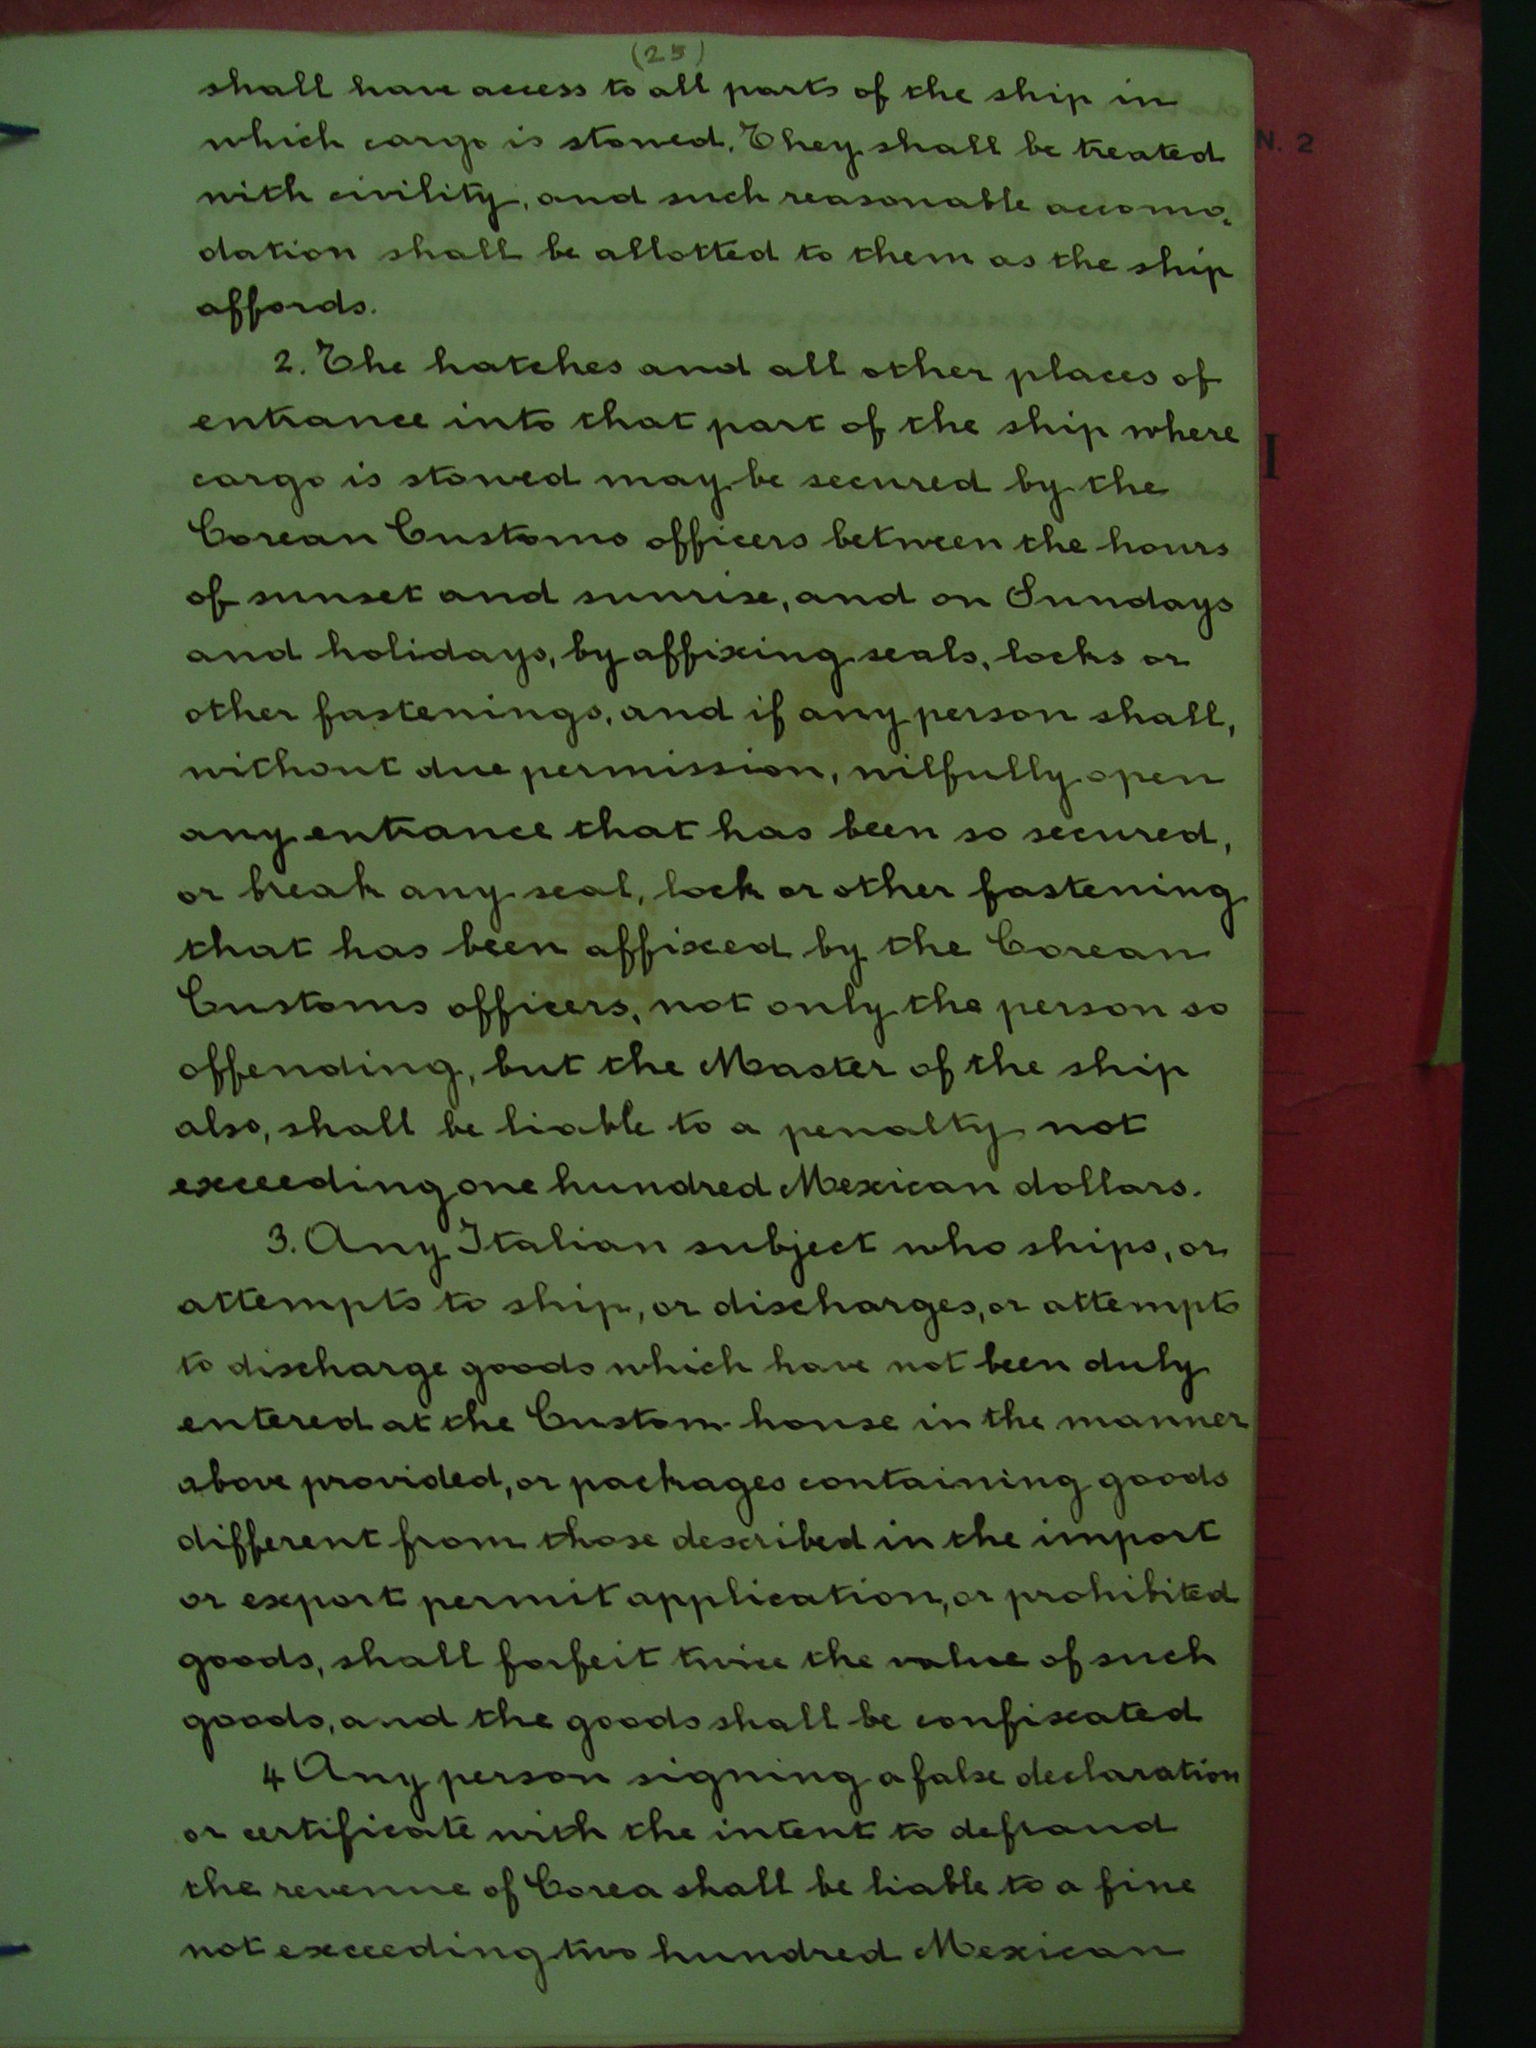 (25)
shall have access to all parts of the ship in
which cargo is stowed. They shall be treated
with civility, and such reasonable accomo-
dation shall be allotted to them as the ship
affords.
2. The hatches and all other places of
entrance into that part of the ship where
cargo is stowed may be secured by the
Corean Customs officers between the hours
of sunset and sunrise, and on Sundays
and holidays, by affixing seals, locks or
other fastenings, and if any person shall,
without due permission, wilfully open
any entrance that has been so secured,
or break any seal, lock or other fastening
that has been affixed by the Corean
Customs officers, not only the person so
offending, but the Master of the ship
also, shall be liable to a penalty not
exceeding one hundred Mexican dollars.
3. Any Italian subject who ships, or
attempts to ship, or discharges, or attempts
to discharge goods which have not been duly
entered at the Custom-house in the manner
above provided, or packages containing goods
different from those described in the import
or export permit application, or prohibited
goods, shall forfeit twice the value of such
goods, and the goods shall be confiscated
4 Any person signing a false declaration
or certificate with the intent to defraud
the revenue of Corea shall be liable to a fine
not exceeding two hundred Mexican
N. 2
I